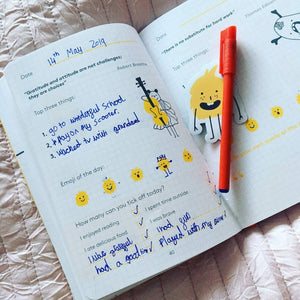 14th May 2019
Date
"Gratitude and attitude are not challenges;
they are choices"
Robert Braathe
Top three things:
1. go to wonderful School
2. Play on my scooter.
3. watched tv with grandad
Emoji of the day:
How many can you tick off today?
I enjoyed reading
I spent time outside
I ate delicious food
I was brave
I was
had a good
I had fun
Played with my
40
Date
"There is no substitute for hard work"
Thomas
Top three things: